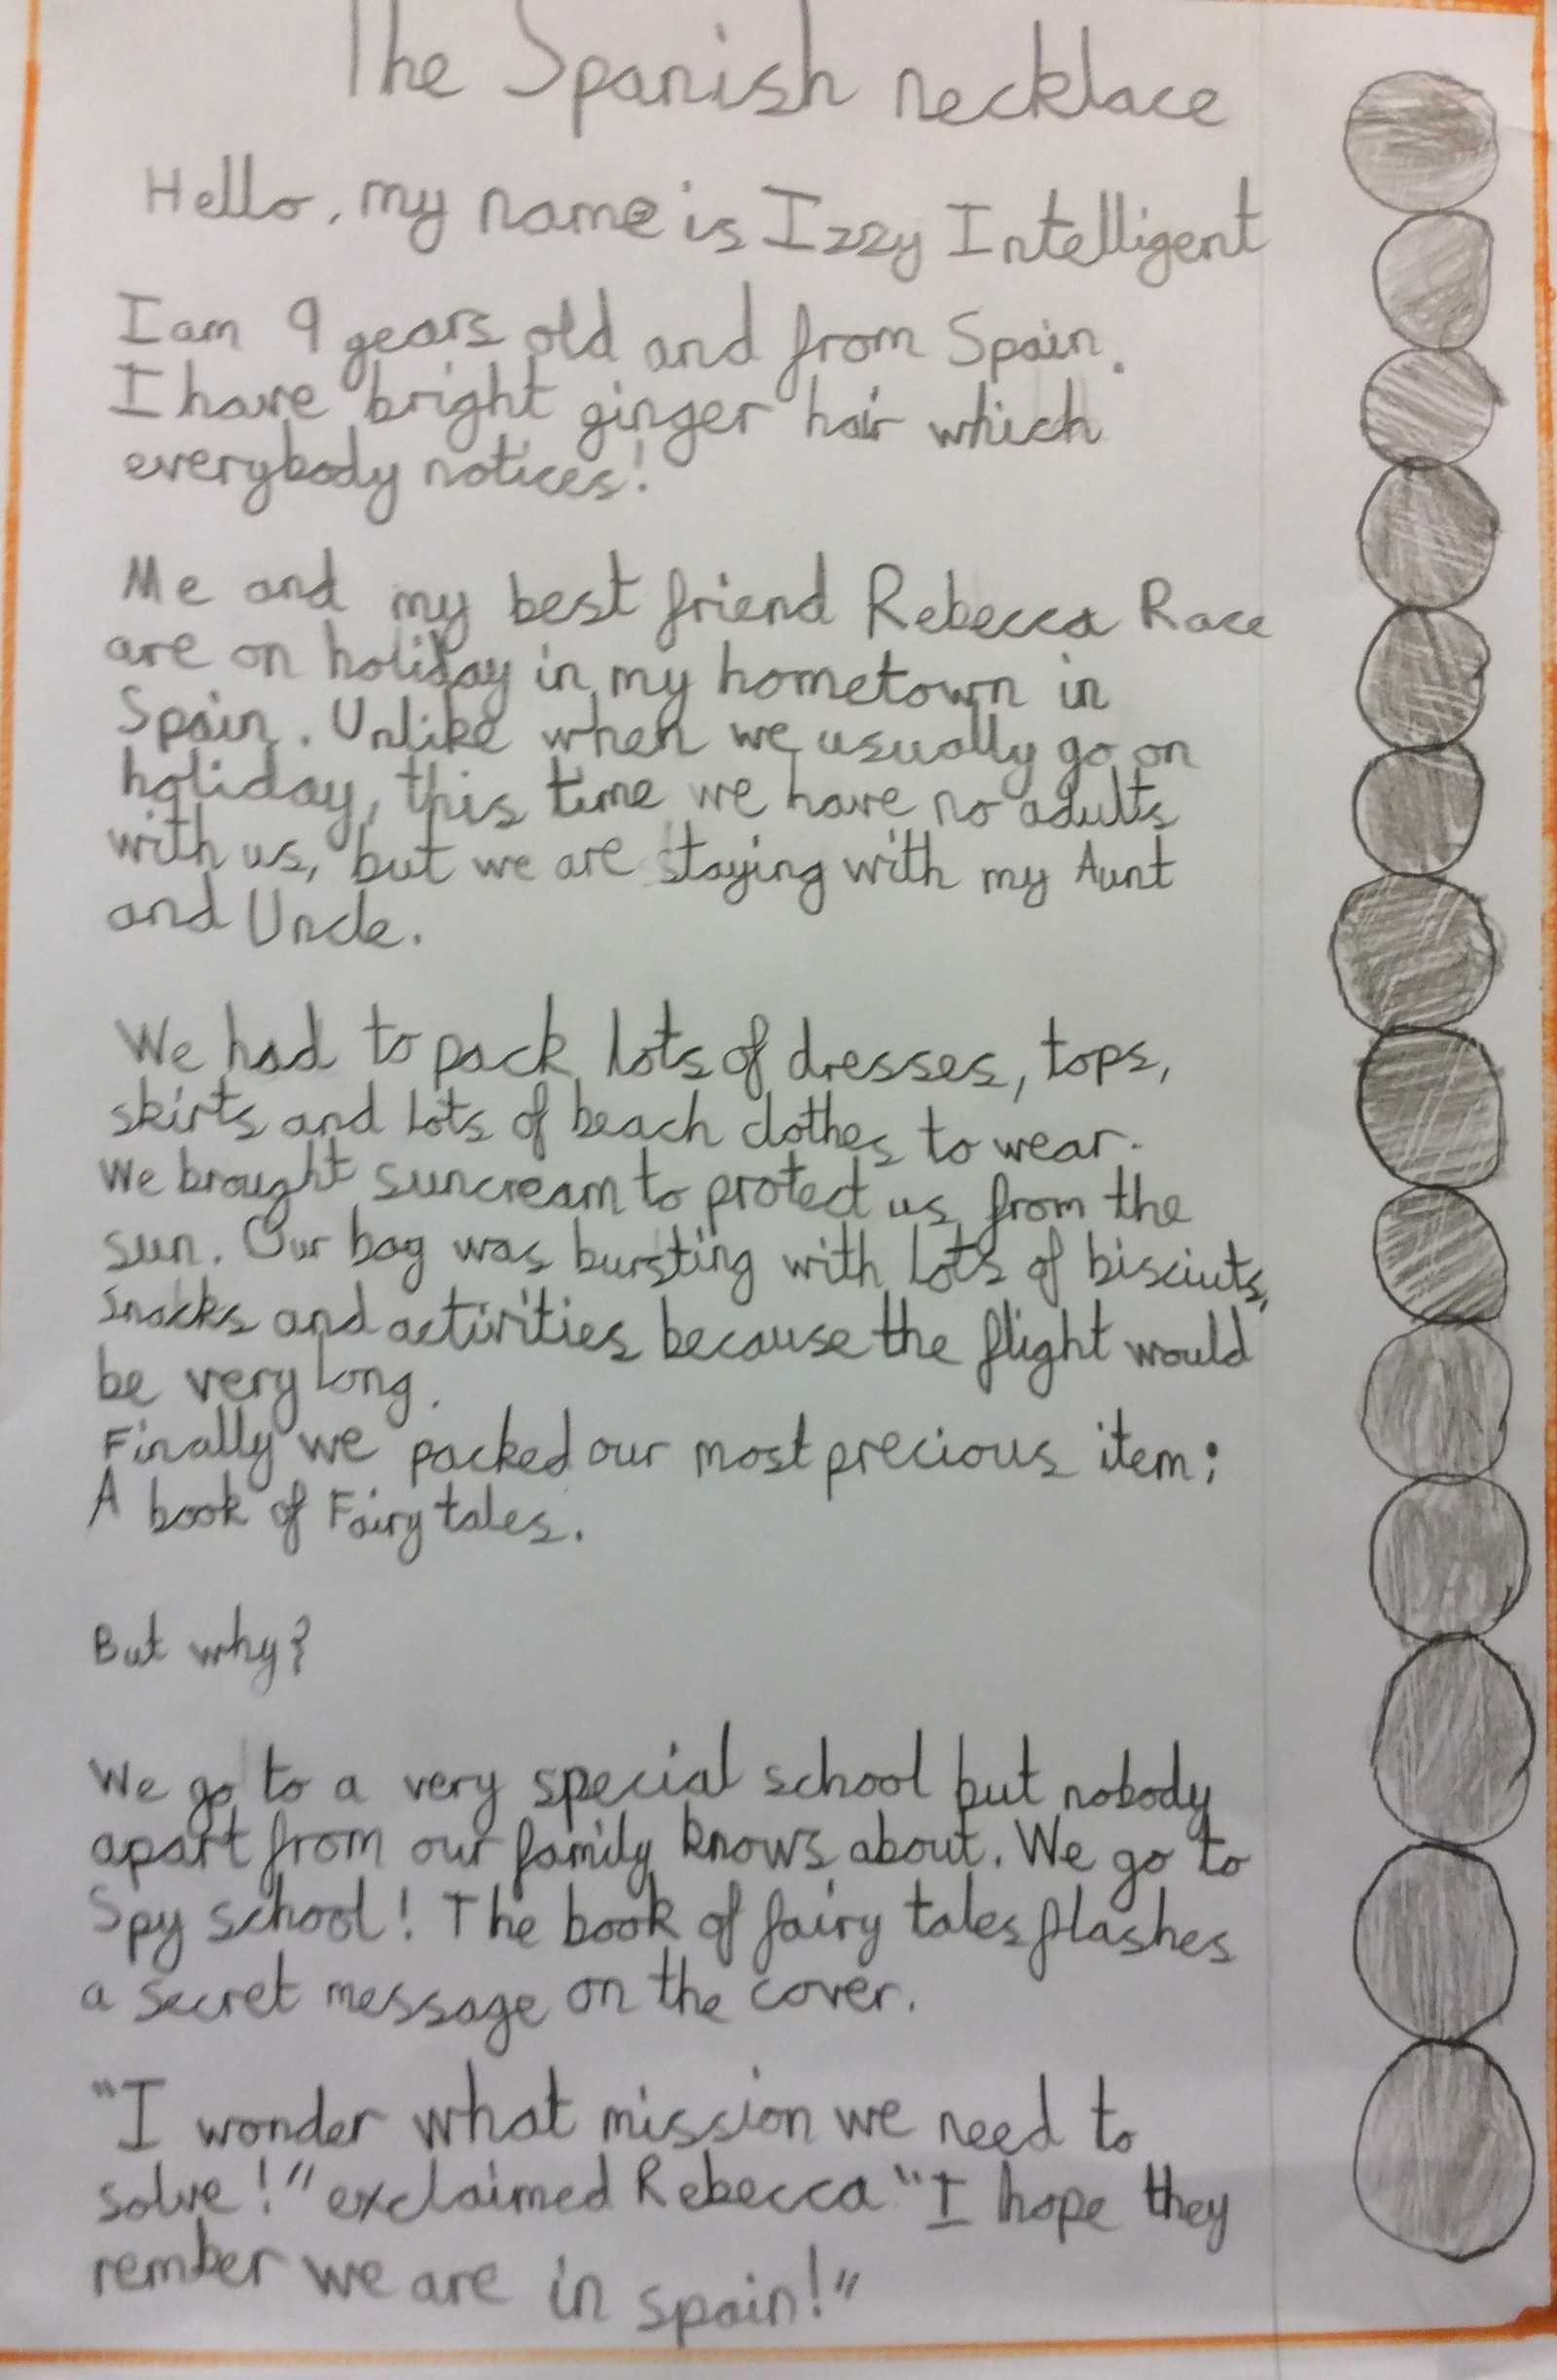 The Spanish necklace
Hello, my name is Izzy Intelligent
I am 9 years old and from Spain.
I have bright ginger hair which
everybody notices!
Me and my best friend Rebecca Race
are on holiday in my hometown in
Spain. Unlike when we usually go on
holiday, this time we have no adults
with us, but we are staying with my Aunt
and Uncle.
We had to pack lots of dresses, tops,
skirts and lots of beach clothes to wear.
We brought suncream to protect us from the
sun. Our bag was bursting with lots of bisciuts,
snacks and activities because the flight would
be very long.
Finally we packed our most precious item:
A book of Fairy tales.
But why?
We go to a very special school but nobody
apart from our family knows about. We go to
Spy school! The book of fairy tales flashes
a secret message on the cover.
"I wonder what mission we need to
solve!" exclaimed Rebecca "I hope they
rember we are in spain!"